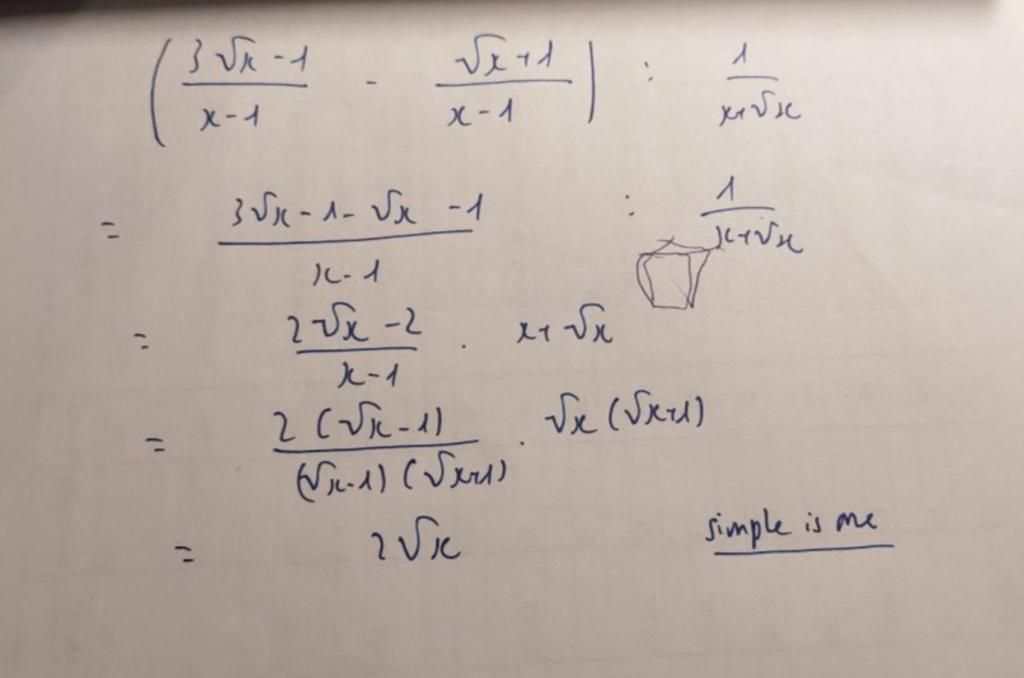 ( (3√x - 1)/(x - 1) - (√x + 1)/(x - 1) ) : 1/(x + √x)
= (3√x - 1 - √x - 1)/(x - 1) : 1/(x + √x)
= (2√x - 2)/(x - 1) . x + √x
= 2(√x - 1)/((√x - 1)(√x + 1)) . √x(√x + 1)
= 2√x
simple is me